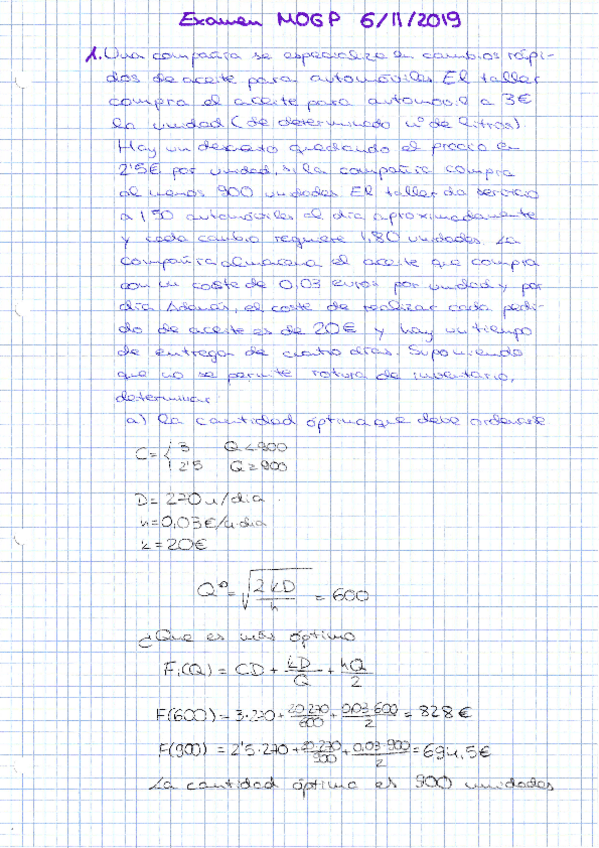 Examen MOGP 6/11/2019
1. Una compañía se especializa en cambios rápi-
dos de aceite para automóviles. El taller
compra el aceite para automóvil a 3€
la unidad (de determinado nº de litros).
Hay un descuento quedando el precio en
2'5€ por unidad, si la compañía compra
al menos 900 unidades. El taller da servicio
a 150 automóviles al día aproximadamente
y cada cambio requiere 1,80 unidades. La
compañía almacena el aceite que compra
con un coste de 0,03 euros por unidad y por
día. Además, el coste de realizar cada pedi-
do de aceite es de 20€ y hay un tiempo
de entrega de cuatro días. Suponiendo
que no se permite rotura de inventario,
determinar:
a) la cantidad óptima que debe ordenarse
C = { 3 Q < 900
2'5 Q ≥ 900
D = 270 u/día
h = 0,03 €/u·día
k = 20€
Q* = √(2kD/h) = 600
¿Que es más óptimo
F₁(Q) = CD + kD/Q + hQ/2
F(600) = 3·270 + 20·270/600 + 0,03·600/2 = 828 €
F(900) = 2'5·270 + 20·270/900 + 0,03·900/2 = 694,5€
La cantidad óptima es 900 unidades